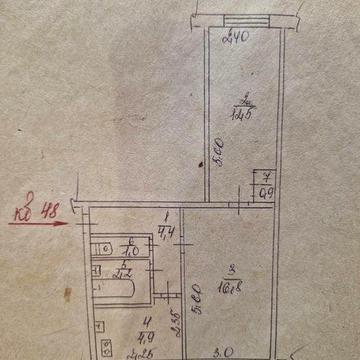 240
2
12,5
5.00
7
0,9
кв 48
1
4,4
6
1,0
5
2,2
3
16,8
5.60
2.35
4
4,9
2.25
3.0